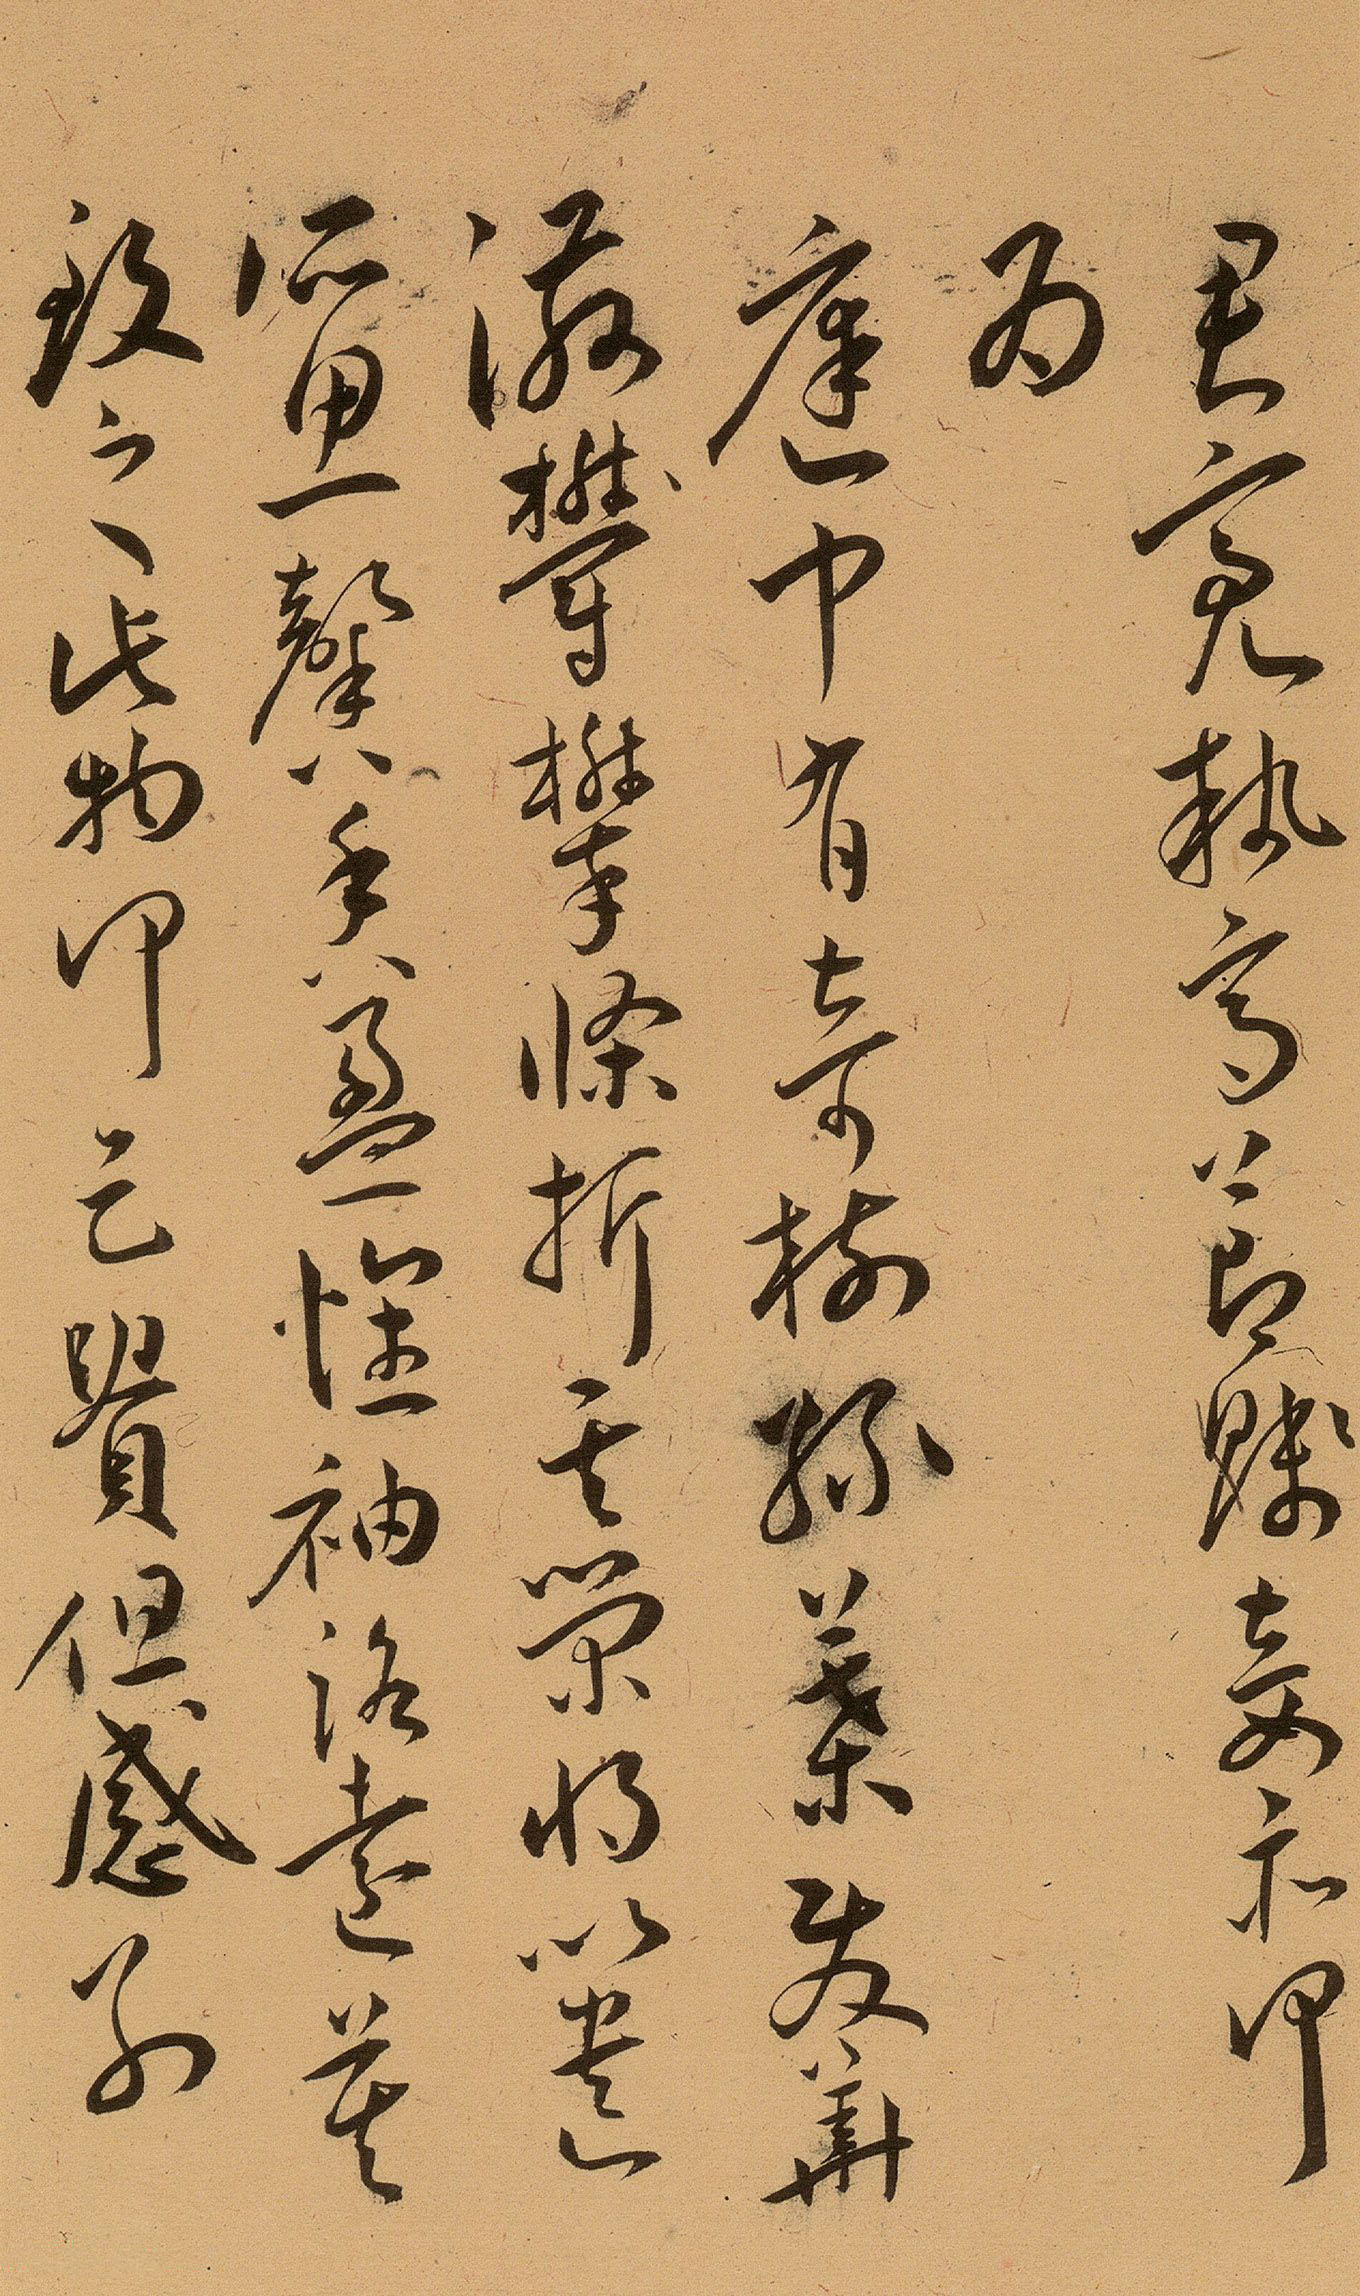 君亮執高節賤妾亦何
為
庭中有奇樹綠葉發華
滋攀條折其榮將以遺
所思馨香盈懷袖路遠莫
致之此物何足貴但感別